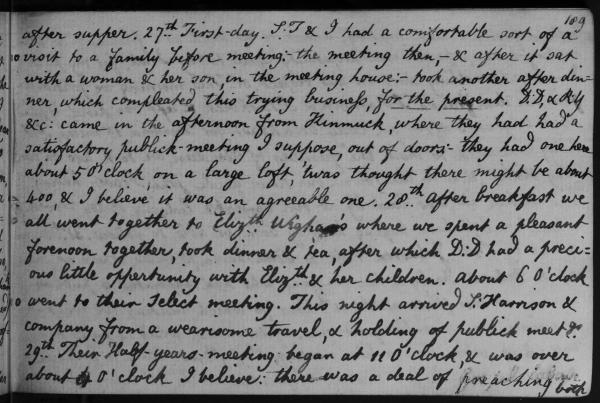 189
after supper. 27th First-day. S.T & I had a comfortable sort of a
visit to a family before meeting:- the meeting then,- & after it sat
with a woman & her son, in the meeting house:- took another after din-
ner, which compleated this trying business, for the present. D.D, & R.Y
&c: came in the afternoon from Kinmuck, where they had had a
satisfactory publick-meeting I suppose, out of doors:- they had one here
about 5 O'clock on a large loft, 'twas thought there might be about
400 & I believe it was an agreeable one. 28th after breakfast we
all went together to Elizth Wigham's where we spent a pleasant
forenoon together, took dinner & tea, after which D:D had a preci-
ous little oppertunity with Elizth & her children. about 6 O'clock
went to their Select meeting. This night arrived S. Harrison &
company from a wearisome travel, & holding of publick meetgs.
29th Their Half-years-meeting began at 11 O'clock, & was over
about 4 O'clock I believe: there was a deal of preaching both